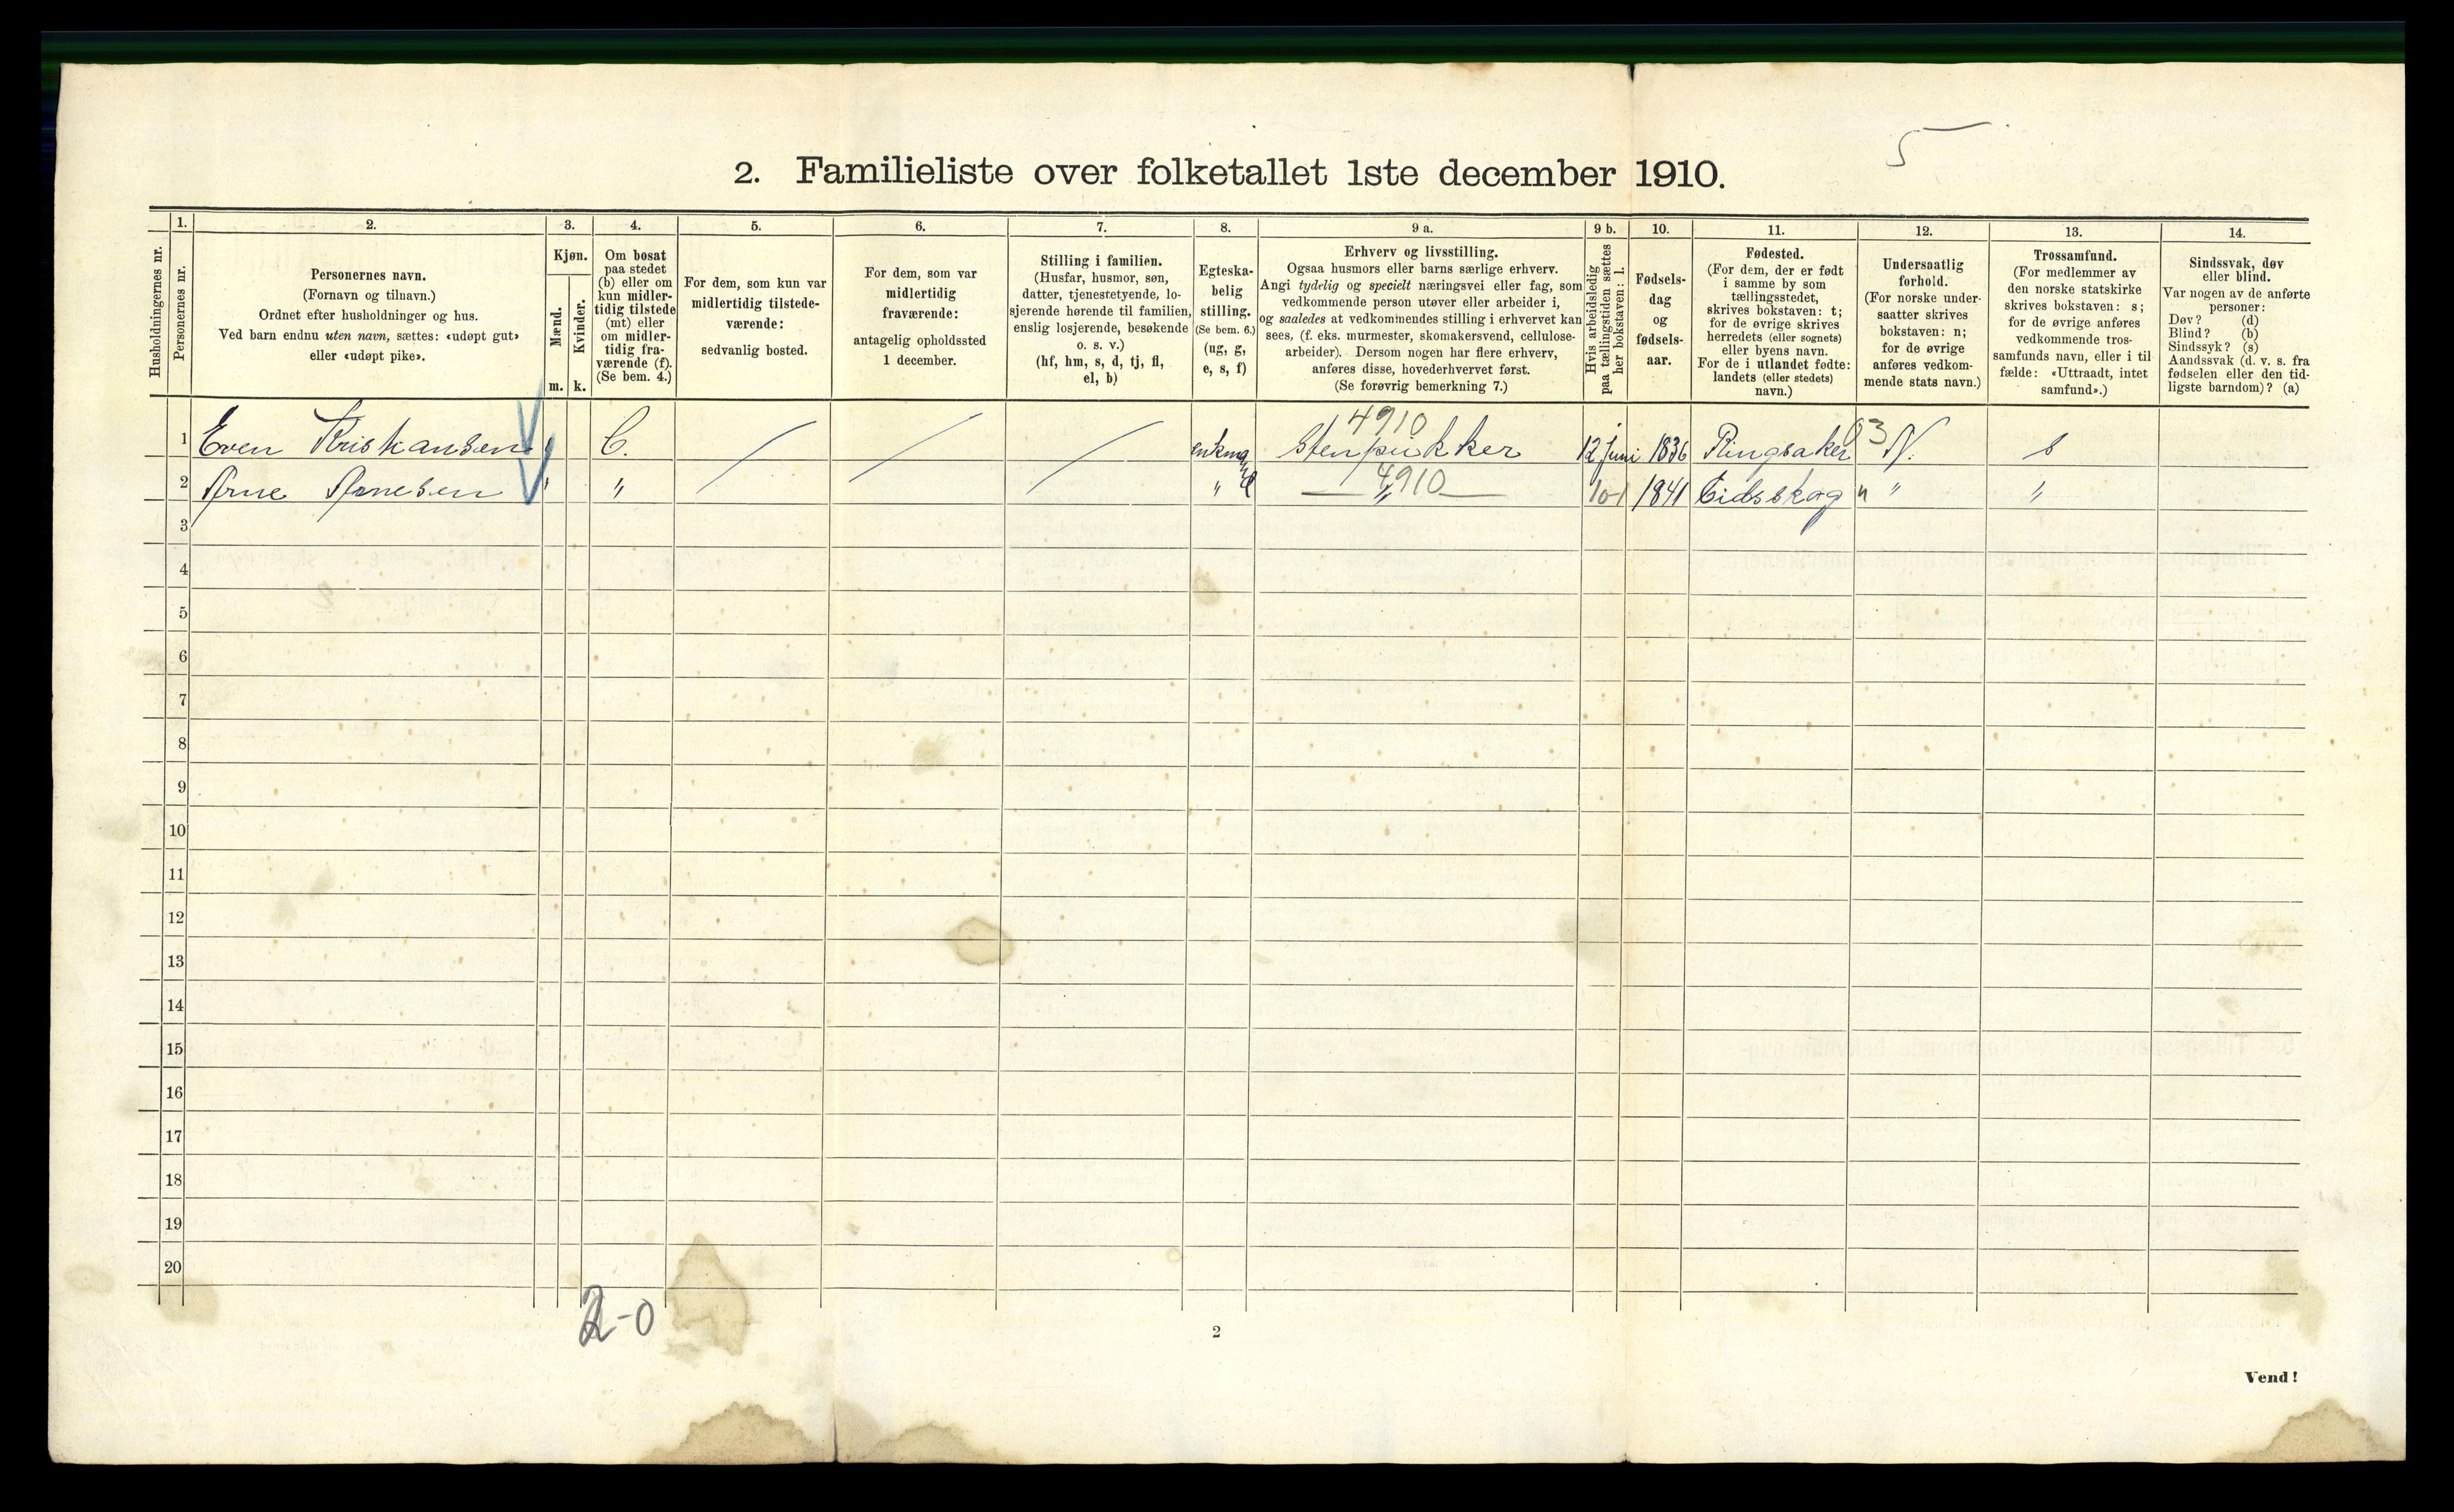 5
2. Familieliste over folketallet 1ste december 1910.
Husholdningernes nr.
1.
Personernes nr.
2.
Personernes navn.
(Fornavn og tilnavn.)
Ordnet efter husholdninger og hus.
Ved barn endnu uten navn, sættes: «udøpt gut»
eller «udøpt pike».
3.
Kjøn.
Mænd.
Kvinder.
m. k.
4.
Om bosat
paa stedet
(b) eller om
kun midler-
tidig tilstede
(mt) eller
om midler-
tidig fra-
værende (f).
(Se bem. 4.)
5.
For dem, som kun var
midlertidig tilstede-
værende:
sedvanlig bosted.
6.
For dem, som var
midlertidig
fraværende:
antagelig opholdssted
1 december.
7.
Stilling i familien.
(Husfar, husmor, søn,
datter, tjenestetyende, lo-
sjerende hørende til familien,
enslig losjerende, besøkende
o. s. v.)
(hf, hm, s, d, tj, fl,
el, b)
8.
Egteska-
belig
stilling.
(Se bem. 6.)
(ug, g,
e, s, f)
9 a.
Erhverv og livsstilling.
Ogsaa husmors eller barns særlige erhverv.
Angi tydelig og specielt næringsvei eller fag, som
vedkommende person utøver eller arbeider i,
og saaledes at vedkommendes stilling i erhvervet kan
sees, (f. eks. murmester, skomakersvend, cellulose-
arbeider). Dersom nogen har flere erhverv,
anføres disse, hovederhvervet først.
(Se forøvrig bemerkning 7.)
9 b.
Hvis arbeidsledig
paa tællingstiden sættes
her bokstaven: l.
10.
Fødsels-
dag
og
fødsels-
aar.
11.
Fødested.
(For dem, der er født
i samme by som
tællingsstedet,
skrives bokstaven: t;
for de øvrige skrives
herredets (eller sognets)
eller byens navn.
For de i utlandet fødte:
landets (eller stedets)
navn.)
12.
Undersaatlig
forhold.
(For norske under-
saatter skrives
bokstaven: n;
for de øvrige
anføres vedkom-
mende stats navn.)
13.
Trossamfund.
(For medlemmer av
den norske statskirke
skrives bokstaven: s;
for de øvrige anføres
vedkommende tros-
samfunds navn, eller i til-
fælde: «Uttraadt, intet
samfund».)
14.
Sindssvak, døv
eller blind.
Var nogen av de anførte
personer:
Døv? (d)
Blind? (b)
Sindssyk? (s)
Aandssvak (d. v. s. fra
fødselen eller den tid-
ligste barndom)? (a)
4910
1 Even Kristiansen b. enkma Stenpukker 12 juni 1836 Ringsaker 03 N. s
4910
2 Arne Arnesen " " e " 10-1 1841 Eidsskog " "
3
4
5
6
7
8
9
10
11
12
13
14
15
16
17
18
19
20
2-0
2
Vend!